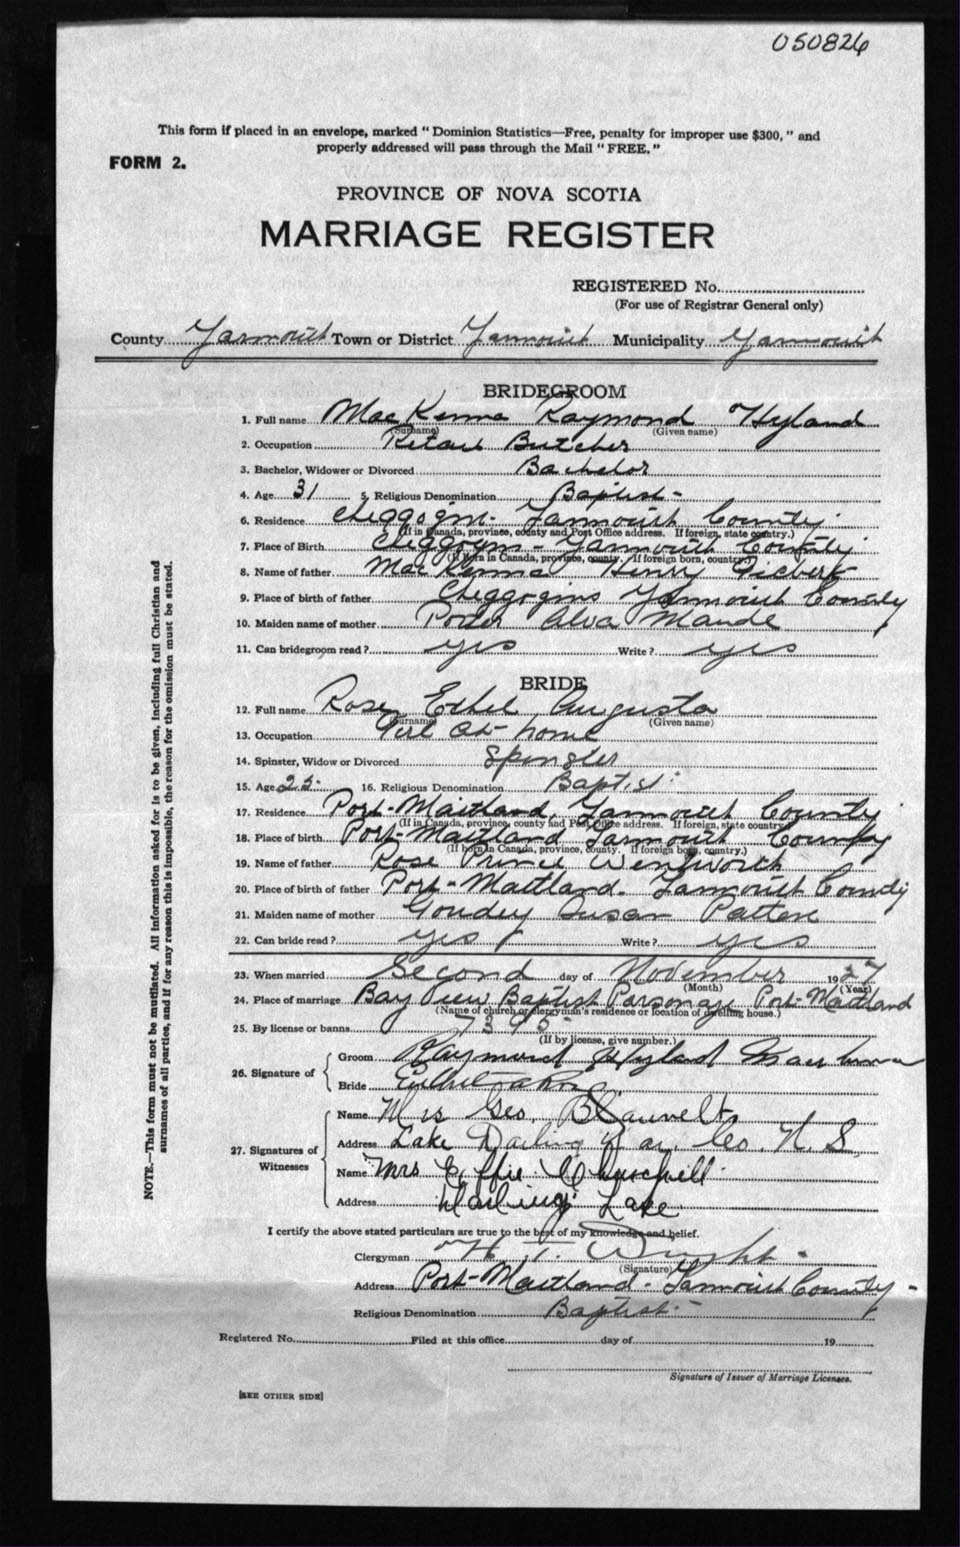 050826
This form if placed in an envelope, marked "Dominion Statistics—Free, penalty for improper use $300," and
properly addressed will pass through the Mail "FREE."
FORM 2.
PROVINCE OF NOVA SCOTIA
MARRIAGE REGISTER
REGISTERED No.
(For use of Registrar General only)
County Yarmouth Town or District Yarmouth Municipality Yarmouth
BRIDEGROOM
1. Full name MacKenna Raymond Hyland
(Surname) (Given name)
2. Occupation Retail Butcher
3. Bachelor, Widower or Divorced Bachelor
4. Age 31 5. Religious Denomination Baptist-
6. Residence Cheggogin- Yarmouth County
(If in Canada, province, county and Post Office address. If foreign, state country.)
7. Place of Birth Cheggogin - Yarmouth County
(If born in Canada, province, county. If foreign born, country.)
8. Name of father MacKenna Henry
9. Place of birth of father Cheggogins Yarmouth County
10. Maiden name of mother Porter Alva Maude
11. Can bridegroom read? yes Write? yes
BRIDE
12. Full name Rose Ethel Augusta
(Surname) (Given name)
13. Occupation Girl at home
14. Spinster, Widow or Divorced Spinster
15. Age 25 16. Religious Denomination Baptist
17. Residence Port-Maitland, Yarmouth County
(If in Canada, province, county and Post Office address. If foreign, state country.)
18. Place of birth Port-Maitland Yarmouth County
(If born in Canada, province, county. If foreign born, country.)
19. Name of father Rose Prince Wentworth
20. Place of birth of father Port-Maitland- Yarmouth County
21. Maiden name of mother Goudey Susan Patten
22. Can bride read? yes Write? yes
23. When married Second day of November 1927
(Month) (Year)
24. Place of marriage Bay View Baptist Parsonage Port-Maitland
(Name of church or clergyman's residence or location of dwelling house.)
25. By license or banns 7395
(If by license, give number.)
26. Signature of
Groom Raymond Hyland
Bride
27. Signatures of Witnesses
Name Mrs Geo. B Sauvelt
Address Lake Darling Yar. Co. N. S.
Name Mrs Effie Churchill
Address Darling Lake
I certify the above stated particulars are true to the best of my knowledge and belief.
Clergyman H. T. Wright.
(Signature)
Address Port-Maitland- Yarmouth County-
Religious Denomination Baptist-
Registered No. Filed at this office day of 19
Signature of Issuer of Marriage Licenses.
[SEE OTHER SIDE]
NOTE.—This form must not be mutilated. All information asked for is to be given, including full Christian and
surnames of all parties, and if for any reason this is impossible, the reason for the omission must be stated.